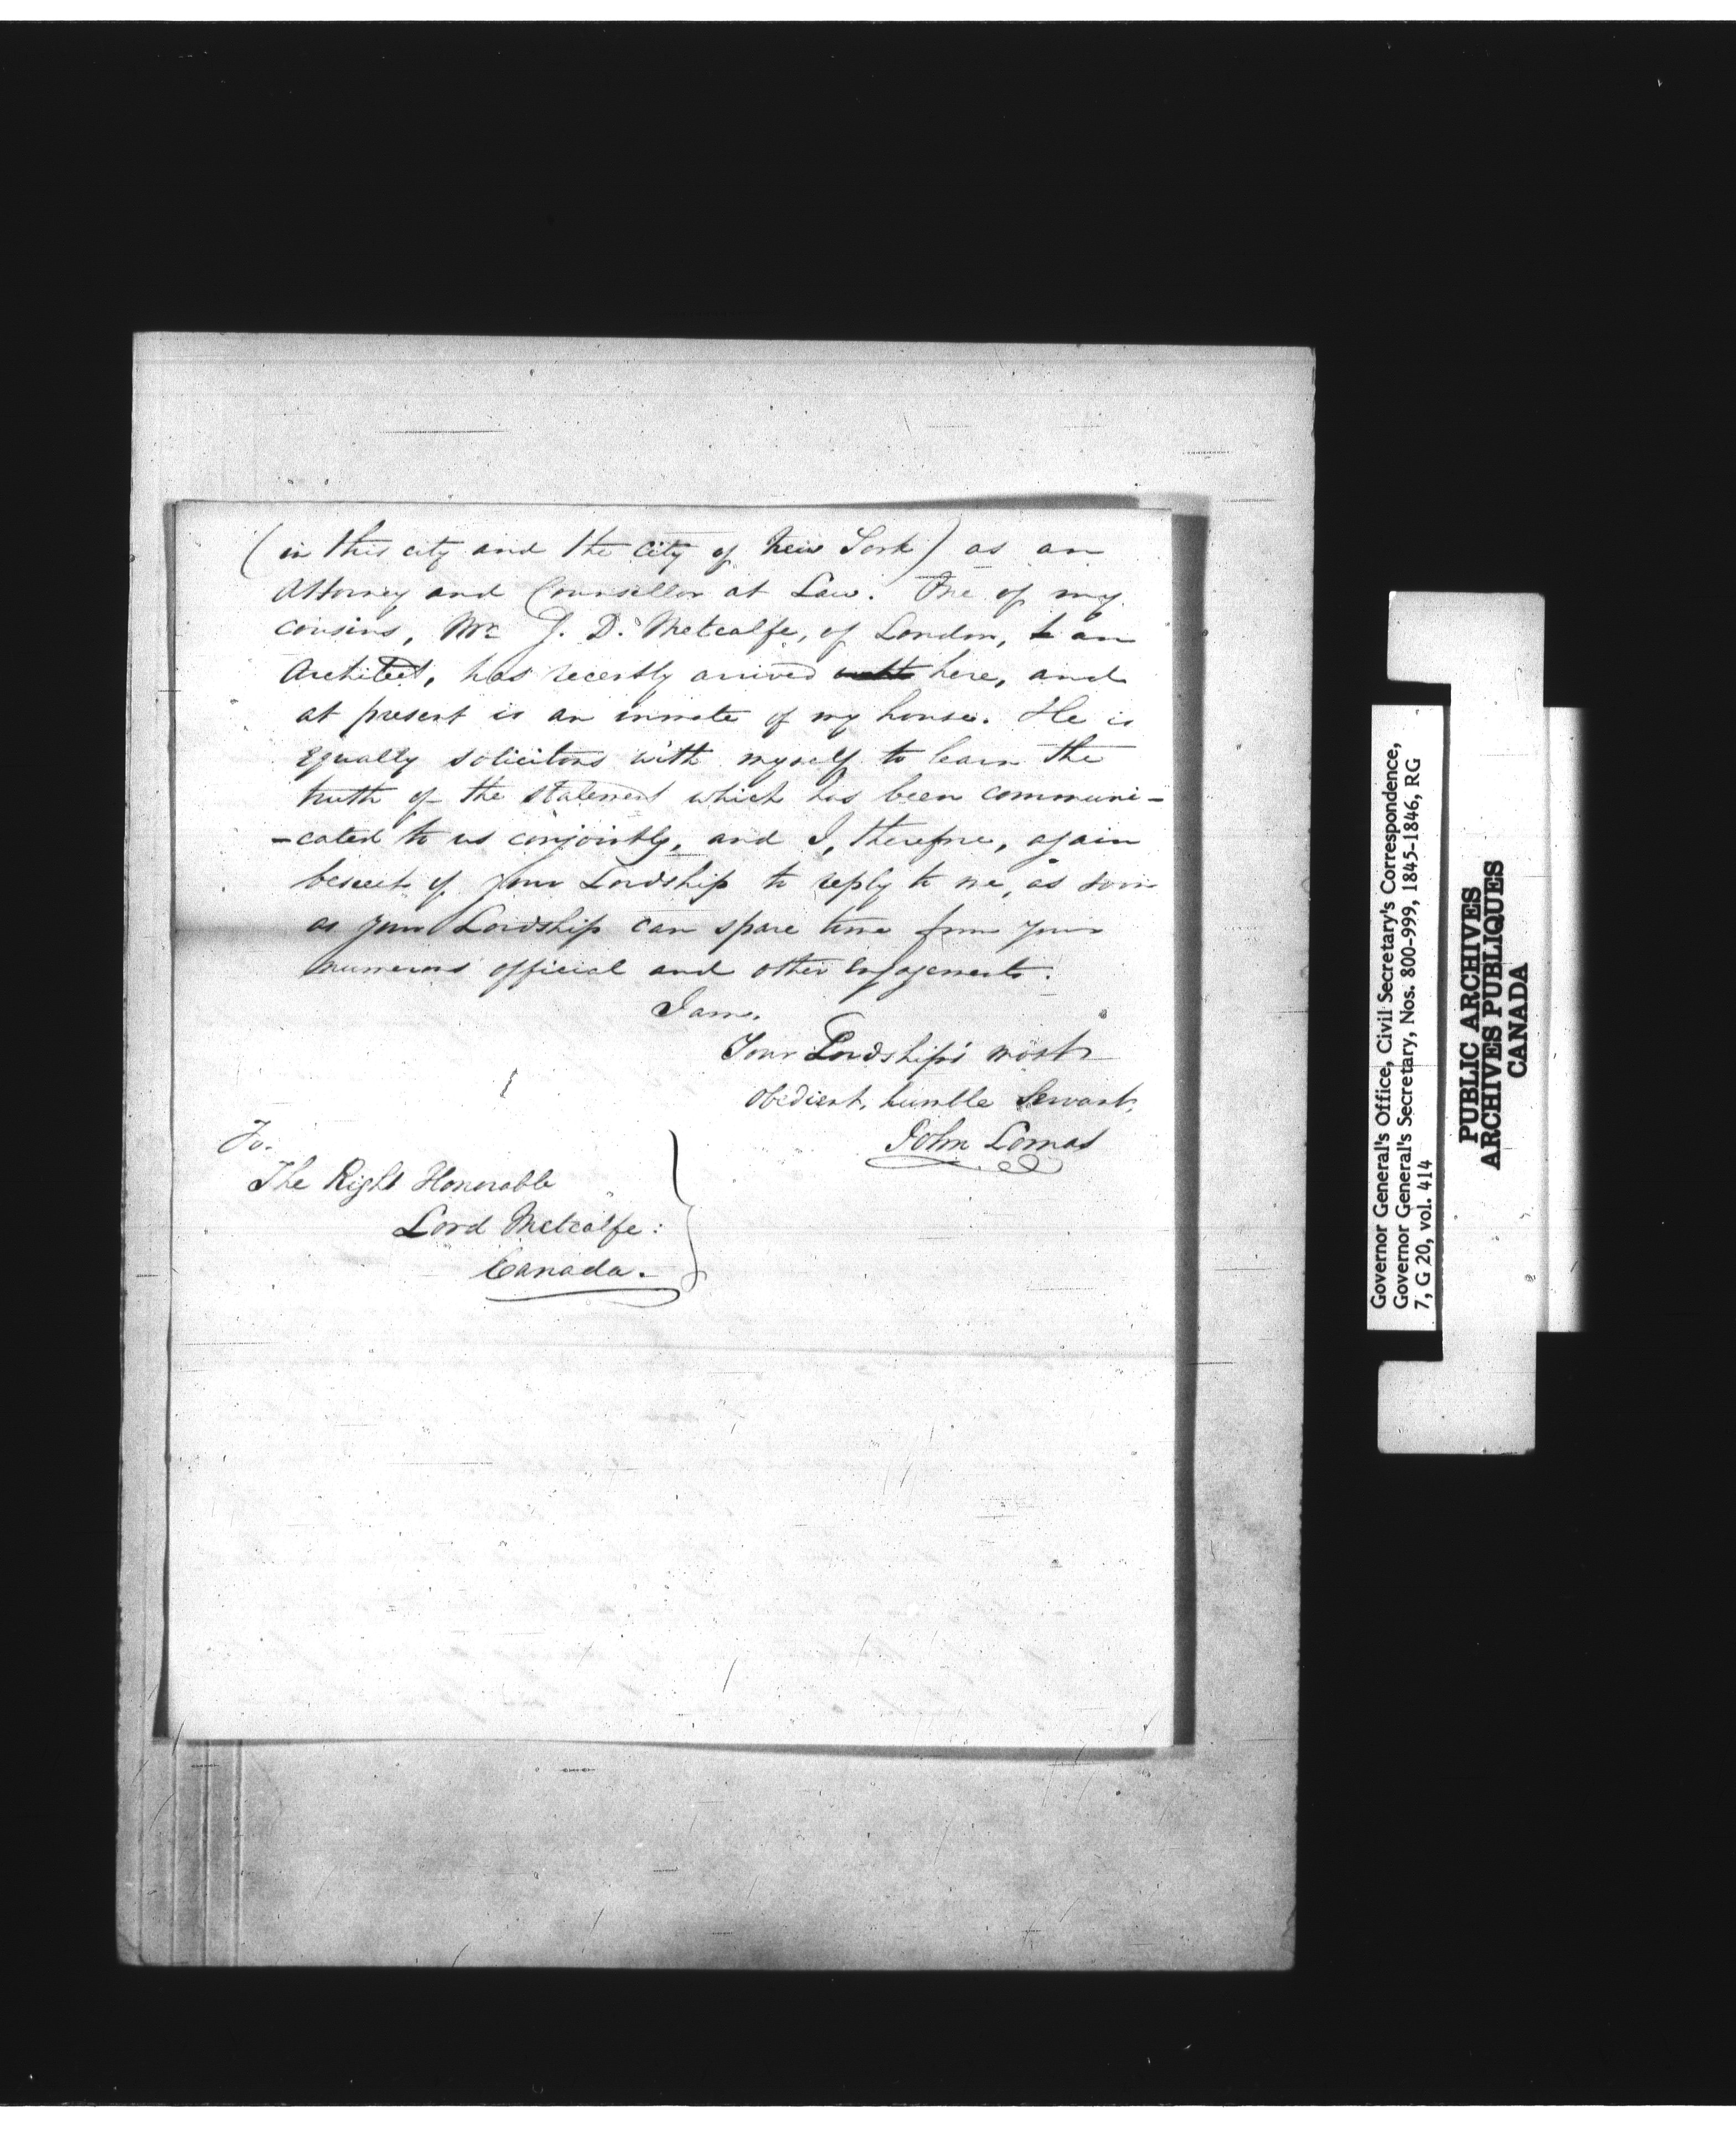 (in this city and the city of New York) as an
Attorney and Counsellor at Law. One of my
cousins, Mr J. D. Metcalfe, of London, an
Architect, has recently arrived here, and
at present is an inmate of my house. He is
equally solicitous with myself to learn the
truth of the statement which has been communi-
-cated to us conjointly, and I, therefore, again
beseech of your Lordship to reply to me, as soon
as your Lordship can spare time from your
numerous official and other engagements.
I am,
Your Lordship's most
obedient, humble Servant,
John Lomas
To.
The Right Honorable
Lord Metcalfe:
Canada.
Governor General's Office, Civil Secretary's Correspondence,
Governor General's Secretary, Nos. 800-999, 1845-1846, RG
7, G 20, vol. 414
PUBLIC ARCHIVES
ARCHIVES PUBLIQUES
CANADA